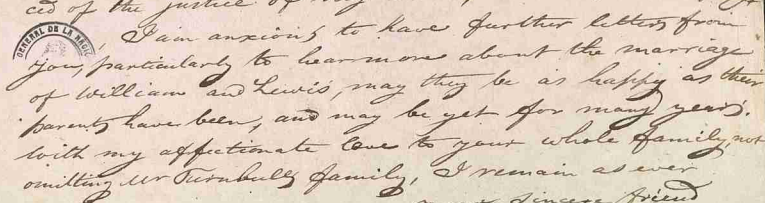 ced of the justice of my
GENERAL DE LA NACIO
I am anxious to have further letters from
you, particularly to hear more about the marriage
of William and Lewis, may they be as happy as their
parents have been, and may be yet for many years.
With my affectionate love to your whole family, not
omitting Mr Turnbulls family, I remain as ever
sincere friend